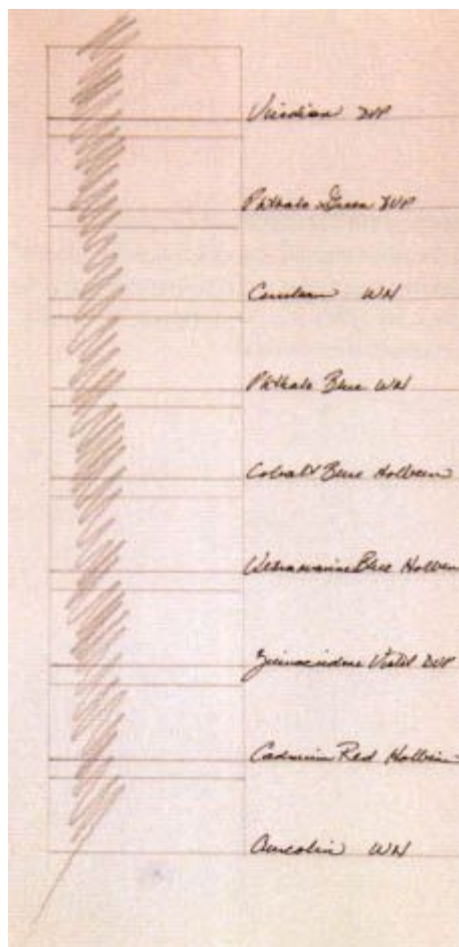 Viridian DVP
Phthalo Green DVP
Cerulean WN
Phthalo Blue WN
Cobalt Blue Holbein
Ultramarine Blue Holbein
Quinacridone Violet DVP
Cadmium Red Holbein
Aureolin WN